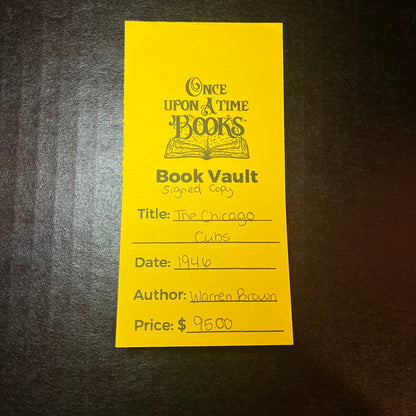 ONCE
UPON A TIME
BOOKS
Book Vault
Signed Copy
Title: The Chicago
Cubs
Date: 1946
Author: Warren Brown
Price: $ 95.00